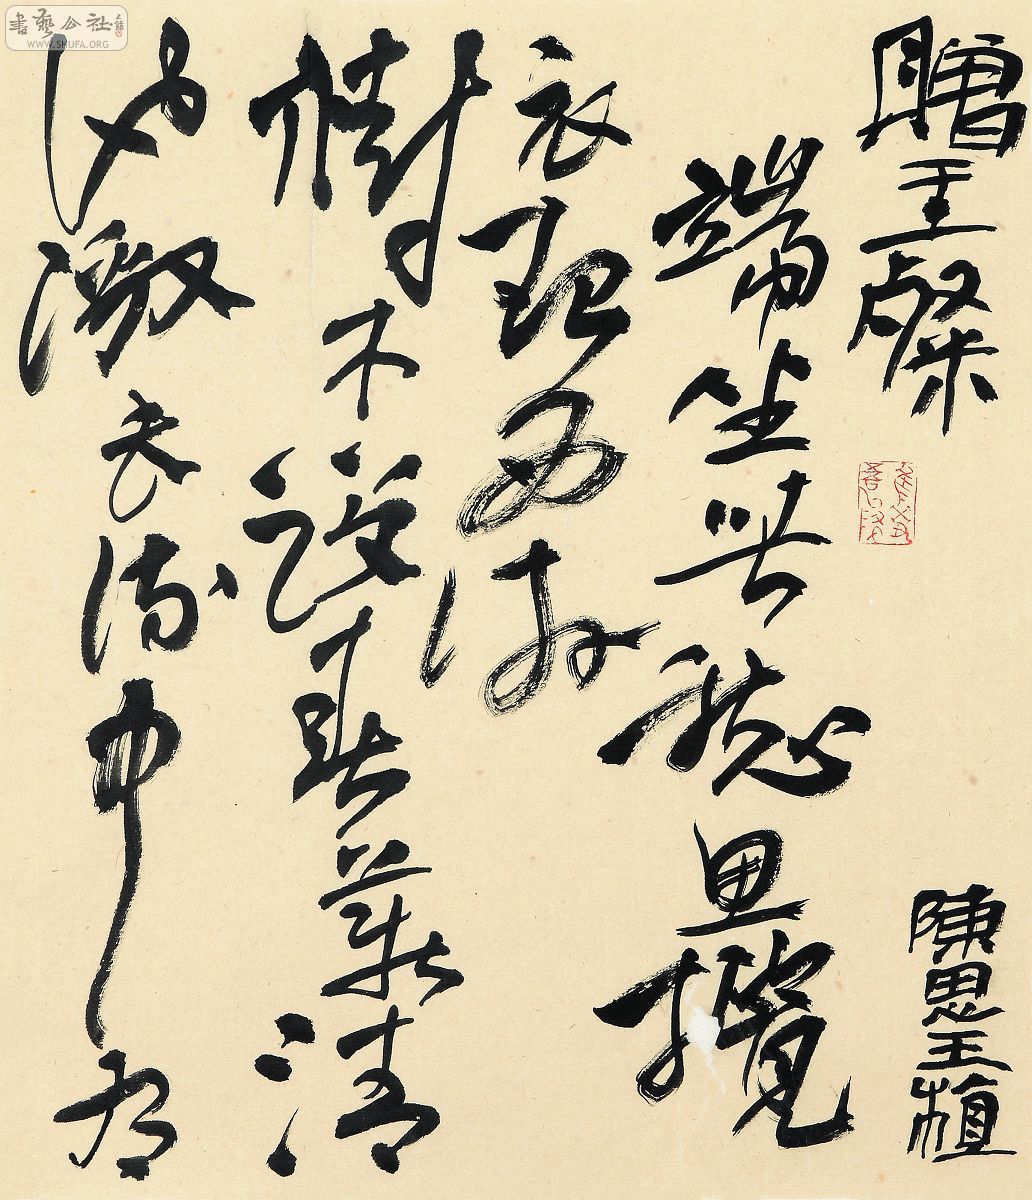 贈王粲 陳思王植
端坐苦愁思攬
衣起西游
樹木發春華清
池激長流中有
書藝公社
WWW.SHUFA.ORG